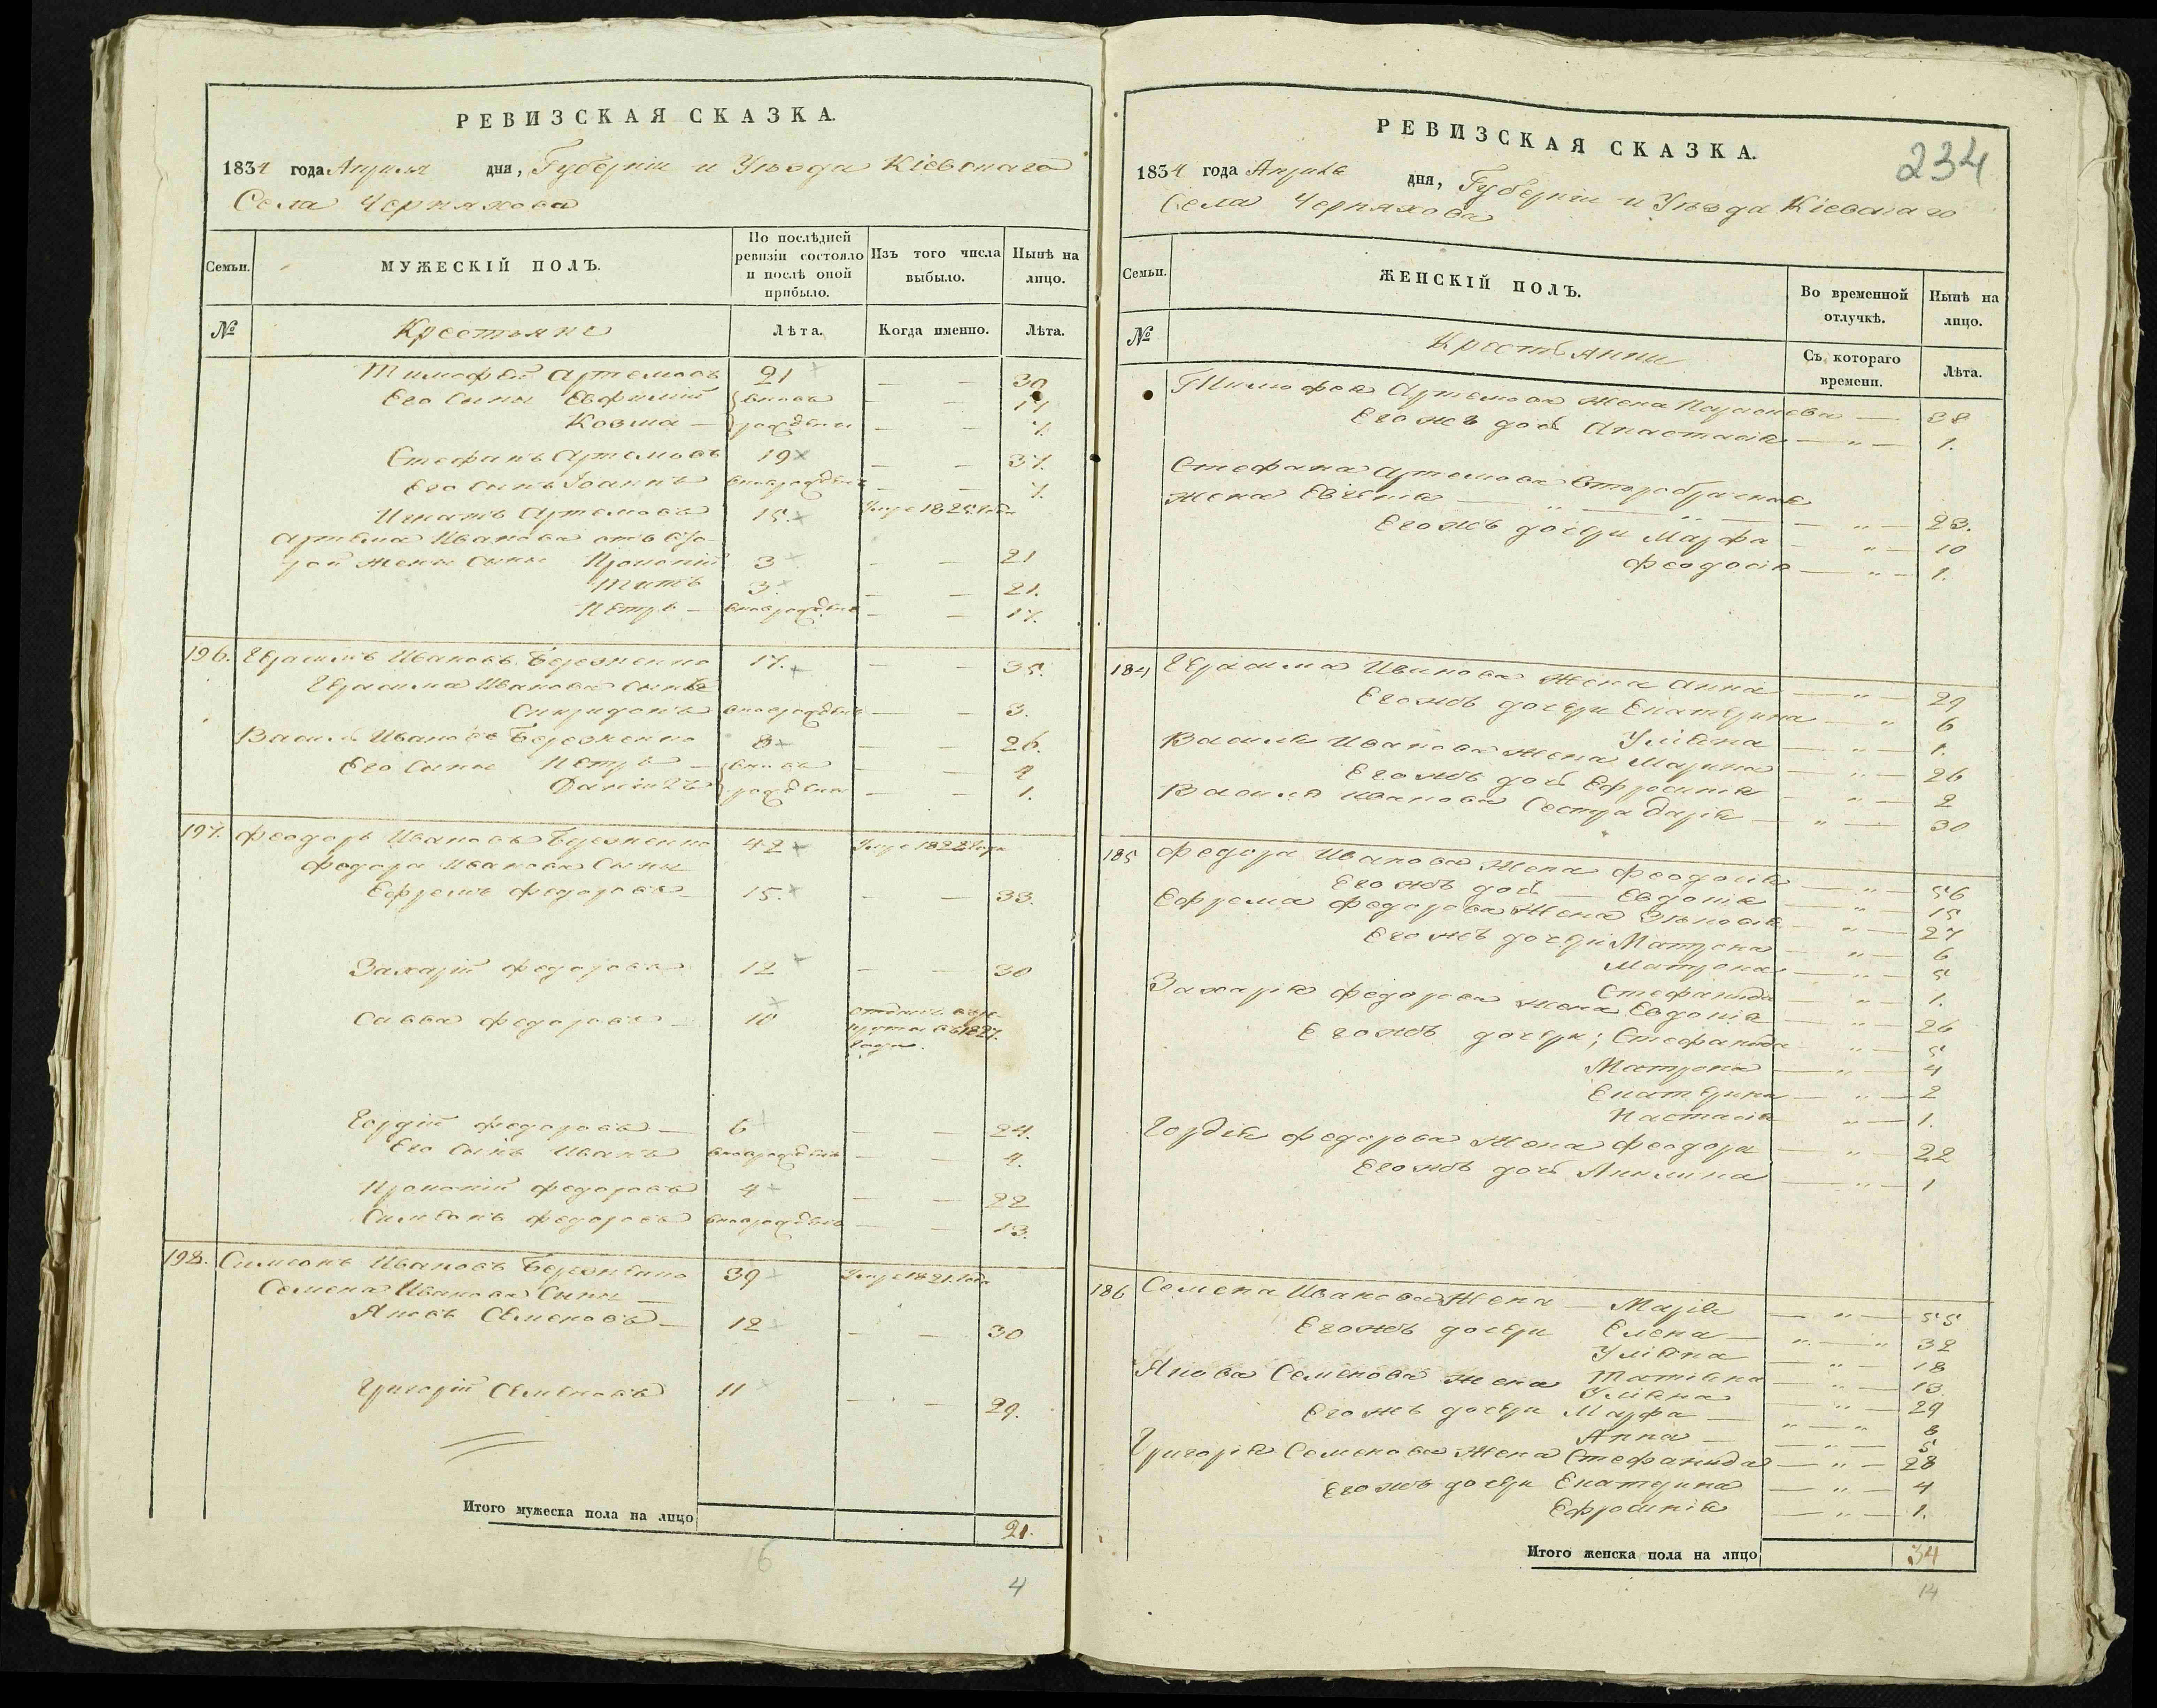 РЕВИЗСКАЯ СКАЗКА.
1834 года Апреля дня, Губерніи и Уѣзда Кіевскаго
Села Черняхова
Семьи. МУЖЕСКІЙ ПОЛЪ. По послѣдней ревизіи состояло и послѣ оной прибыло. Изъ того числа выбыло. Нынѣ на лицо.
№ Крестьяне Лѣта. Когда именно. Лѣта.
Тимофей Артемовъ 21 — —
Его сыны Евфимій вновь — —
Козма — рождены — —
Стефанъ Артемовъ 19 — — 37.
Его сынъ Іоаннъ вноврожденъ — —
Игнатъ Артемовъ 15. Умре 1825 года
Артема Иванова отъ вто-
рой жены сыны Прокопій 3 — — 21
Титъ 3. — — 21.
Петръ — вноврожденъ — — 17.
196. Герасимъ Ивановъ Березненко 17. — — 35.
Герасима Иванова сынъ
Спиридонъ вноврожденъ — — 3.
Василь Ивановъ Березненко 8 — — 26.
Его сыны Петръ — вновь — — 4
Даніилъ рождены — — 1.
197. Феодоръ Ивановъ Березненко 42 Умре 1822 года
Федора Иванова сыны
Ефремъ Федоровъ 15. — — 33.
Захарій Федоровъ 12 — — 30
Савва Федоровъ — 10 отданъ въ ре-
круты въ 1827.
года.
Гордій Федоровъ — 6 — — 24.
Его сынъ Иванъ вноврожденъ — — 4.
Прокопій Федоровъ 4 — — 22
Симеонъ Федоровъ вноврожденъ — — 13.
198. Симеонъ Ивановъ Березненко 39 Умре 1821 года
Семена Иванова сыны —
Яковъ Семеновъ — 12 — — 30
Григорій Семеновъ 11 — — 29.
Итого мужеска пола на лицо 21.
16
4
РЕВИЗСКАЯ СКАЗКА.
234
1834 года Апреля дня, Губерніи и Уѣзда Кіевскаго
Села Черняхова
Семьи. ЖЕНСКІЙ ПОЛЪ. Во временной отлучкѣ. Нынѣ на лицо.
№ Крестьянки Съ котораго времени. Лѣта.
Тимофея Артемова жена — 38
Его жъ дочь Анастасія — " — 1.
Стефана Артемова второбрачная
жена Евгенія — " — 23.
Его жъ дочери Марфа — " — 10
Феодосія — " — 1.
184 Герасима Иванова жена Анна — " — 29
Его жъ дочери Екатерина — " 6
Уліяна — " — 1.
Василя Иванова жена Марина — " — 26
Его жъ дочь Ефросинія — " — 2
Василя Иванова сестра Дарія — " — 30
185 Федора Иванова жена Феодосія — " — 56
Его жъ дочь — Евдокія — " — 15
Ефрема Федорова жена Зѣновія — " — 27
Его жъ дочери Матрона — " — 6
Матрона — " — 5
Стефанида — " — 1.
Захарія Федорова жена Евдокія — " — 26
Его жъ дочери; Стефанида " — 5
Матрона — " — 4
Екатерина — " — 2
Настасія " — 1.
Гордія Федорова жена Феодора — " — 22
Его жъ дочь Акилина — " — 1
186 Семена Иванова жена — Марія — " — 55
Его жъ дочери Елена — " — " 32
Уліяна — " — 18
Татіяна — " — 13
Якова Семенова жена Уліяна — " — 29
Его жъ дочери Марфа — " — " 8
Анна — " — 5
Григорія Семенова жена Стефанида — " — 28
Его жъ дочери Екатерина — " — 4
Ефросинія — " — 1.
Итого женска пола на лицо 34
14